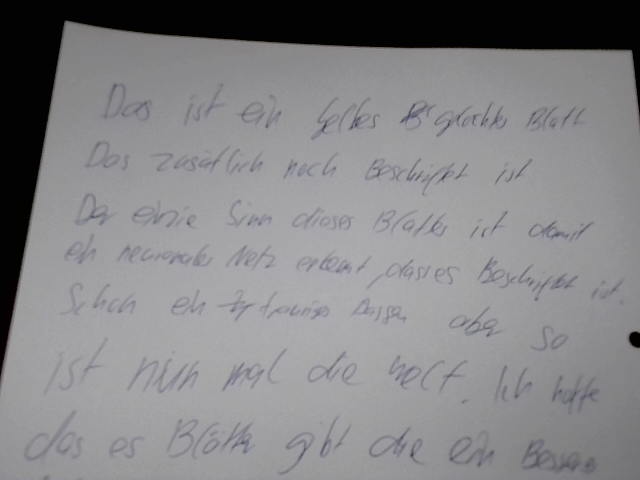 Das ist ein gelochtes Blatt
Das zusätlich noch Beschriftet ist
Der einzie Sinn dieses Blattes ist damit
ein neuronales Netz erkennt, dass es Beschriftet ist.
Schon ein trauriges aber so
ist nun mal die welt. Ich hoffe
das es Blätter gibt die ein Besseres